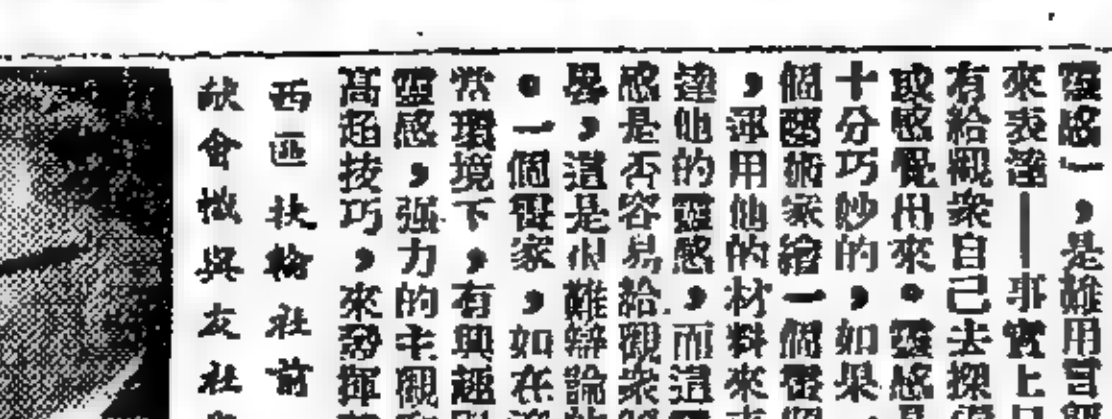 靈感」，是難用言
來表達——事實上
有給觀衆自己去探
或感覺出來。靈感
十分巧妙的，如果
個藝術家繪一個
，運用他的材料來
達他的靈感，而這
感是否容易給觀衆
，這是很難辯論
。一個畫家，如在
常環境下，有興趣
靈感，强力的主觀
高超技巧，來發揮
西區扶輪社前
會幟與友社